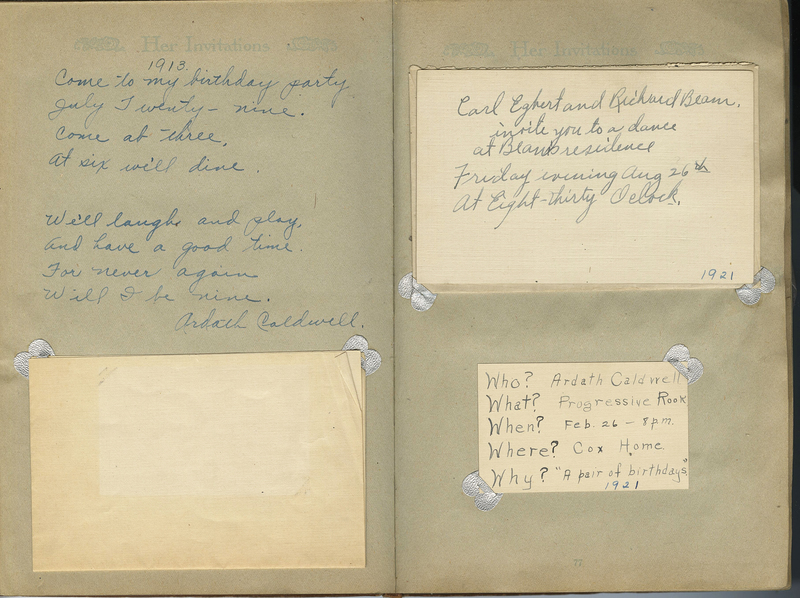 Her Invitations
1913.
Come to my birthday party
July Twenty-nine.
Come at three,
At six we'll dine.
We'll laugh and play,
and have a good time.
For never again
Will I be nine.
Ardath Caldwell.
Her Invitations
Carl Egbert and Richard Beam,
invite you to a dance
at Beam's residence
Friday evening Aug 26th
At Eight-thirty O'clock.
1921
Who? Ardath Caldwell
What? Progressive Rook
When? Feb. 26 - 8 p.m.
Where? Cox Home.
Why? "A pair of birthdays"
1921
77